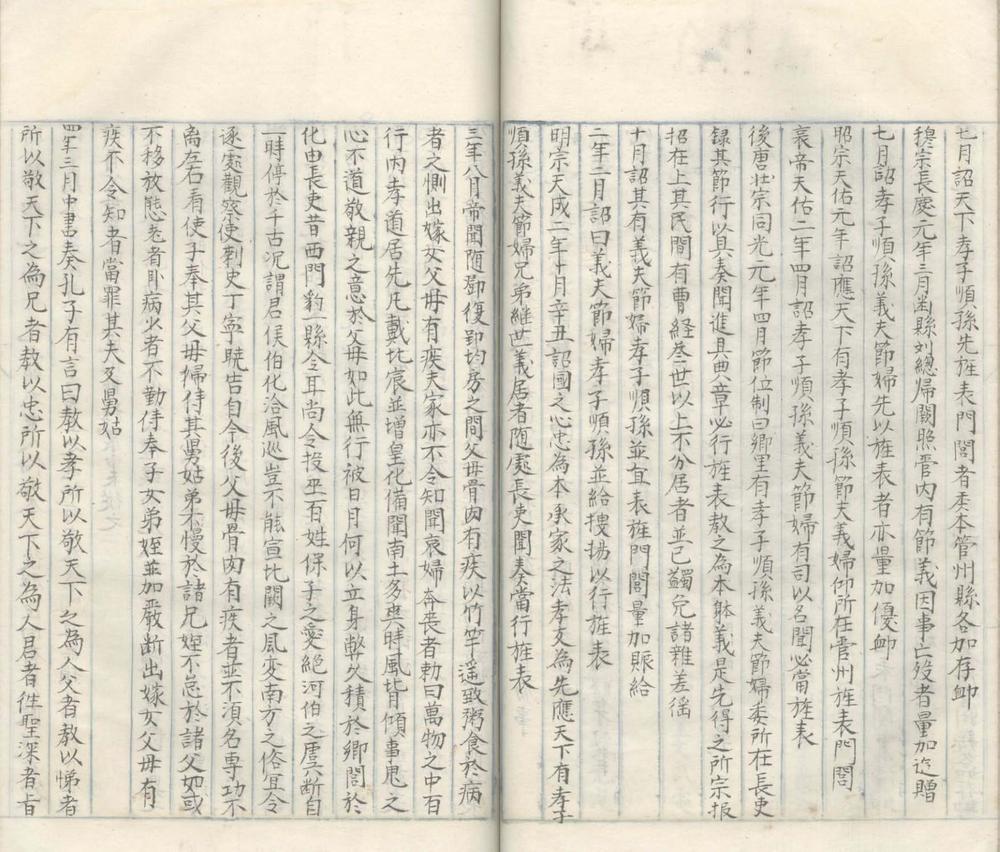 七月詔天下孝子順孫先旌表門閭者委本管州縣各加存卹
穆宗長慶元年三月幽縣刘總歸闕照管内有節義因事亡殁者量加追贈
七月詔孝子順孫義夫節婦先以旌表者亦量加優卹
昭宗天佑元年詔應天下有孝子順孫節夫義婦仰所在管州旌表門閭
哀帝天佑二年四月詔孝子順孫義夫節婦有司以名聞必當旌表
後唐壯宗同光元年四月節位制曰鄉里有孝子順孫義夫節婦委所在長吏
録其節行以具奏聞進具典章必行旌表敎之為本躰義是先得之所宗报
招在上其民間有曹経叁世以上不分居者並已蠲免諸雜差徭
十月詔其有義夫節婦孝子順孫並宜表旌門閭量加賑給
二年二月詔曰義夫節婦孝子順孫並給搜揚以行旌表
明宗天成二年十月辛丑詔國之心忠為本承家之法孝文為先應天下有孝子
順孫義夫節婦兄弟継世義居者随處長吏聞奏當行旌表
三年八月帝聞随鄧復郢均房之間父母骨肉有疾以竹竿遥致粥食於病
者之惻出嫁女父母有疾夫家亦不令知聞哀婦奔喪者勅曰萬物之中百
行内孝道居先凡戴圠宸並增皇化備聞南土多㒷時風皆傾事鬼之
心不道敬親之意於父母如此無行被日月何以立身弊久積於鄉閭於
化由長吏昔西門豹一縣令耳尚令投巫百姓保子之愛絕河伯之虐六断自
一時停於千古况謂君侯伯化洽風巡豈不能宣圠闕之風变南方之俗宜令
逐處觀察使刺史丁寧曉告自今後父母骨肉有疾者並不湏名專功不
离左右看使子奉其父母婦侍其舅姑弟不慢於諸兄姪不怠於諸父如或
不移放態老者卧病少者不勤侍奉子女弟姪並加嚴断出嫁女父母有
疾不令知者當罪其夫及舅姑
四年三月中書奏孔子有言曰敎以孝所以敬天下之為人父者敎以悌者
所以敬天下之為兄者敎以忠所以敬天下之為人君者徃聖深者旨